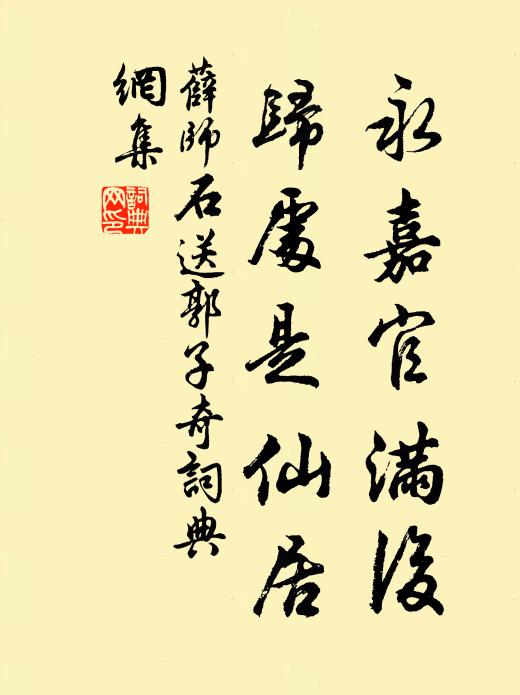 永嘉官滿後
歸處是仙居
薛師石送郭子奇詞典
網集
詞典
网印